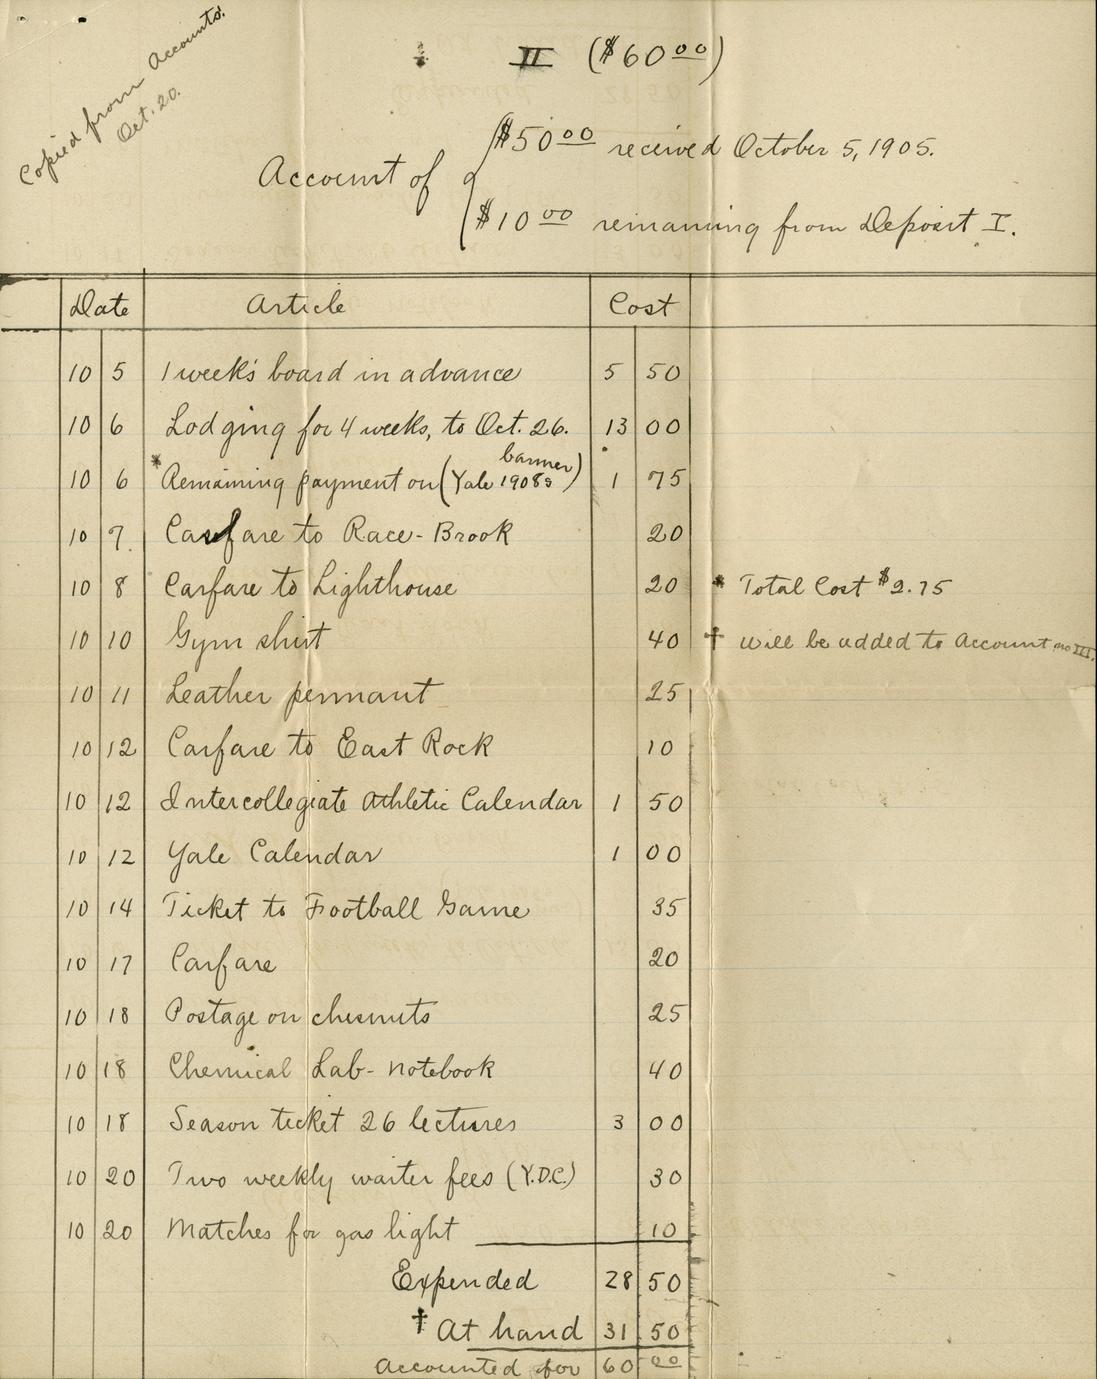 Copied from Accounts.
Oct. 20.
II ($60 00)
Account of
$50 00 received October 5, 1905.
$10 00 remaining from Deposit I.
Date Article Cost
10 5 1 week's board in advance 5 50
10 6 Lodging for 4 weeks, to Oct. 26. 13 00
banner
10 6 *Remaining payment on (Yale 1908s) 1 75
10 7. Carfare to Race-Brook 20
10 8 Carfare to Lighthouse 20 * Total Cost $2.75
10 10 Gym shirt 40 † Will be added to Account no III.
10 11 Leather pennant 25
10 12 Carfare to East Rock 10
10 12 Intercollegiate Athletic Calendar 1 50
10 12 Yale Calendar 1 00
10 14 Ticket to Football Game 35
10 17 Carfare 20
10 18 Postage on chesnuts 25
10 18 Chemical Lab-notebook 40
10 18 Season ticket 26 lectures 3 00
10 20 Two weekly waiter fees (Y.D.C.) 30
10 20 Matches for gas light 10
Expended 28 50
† At hand 31 50
Accounted for 60 00